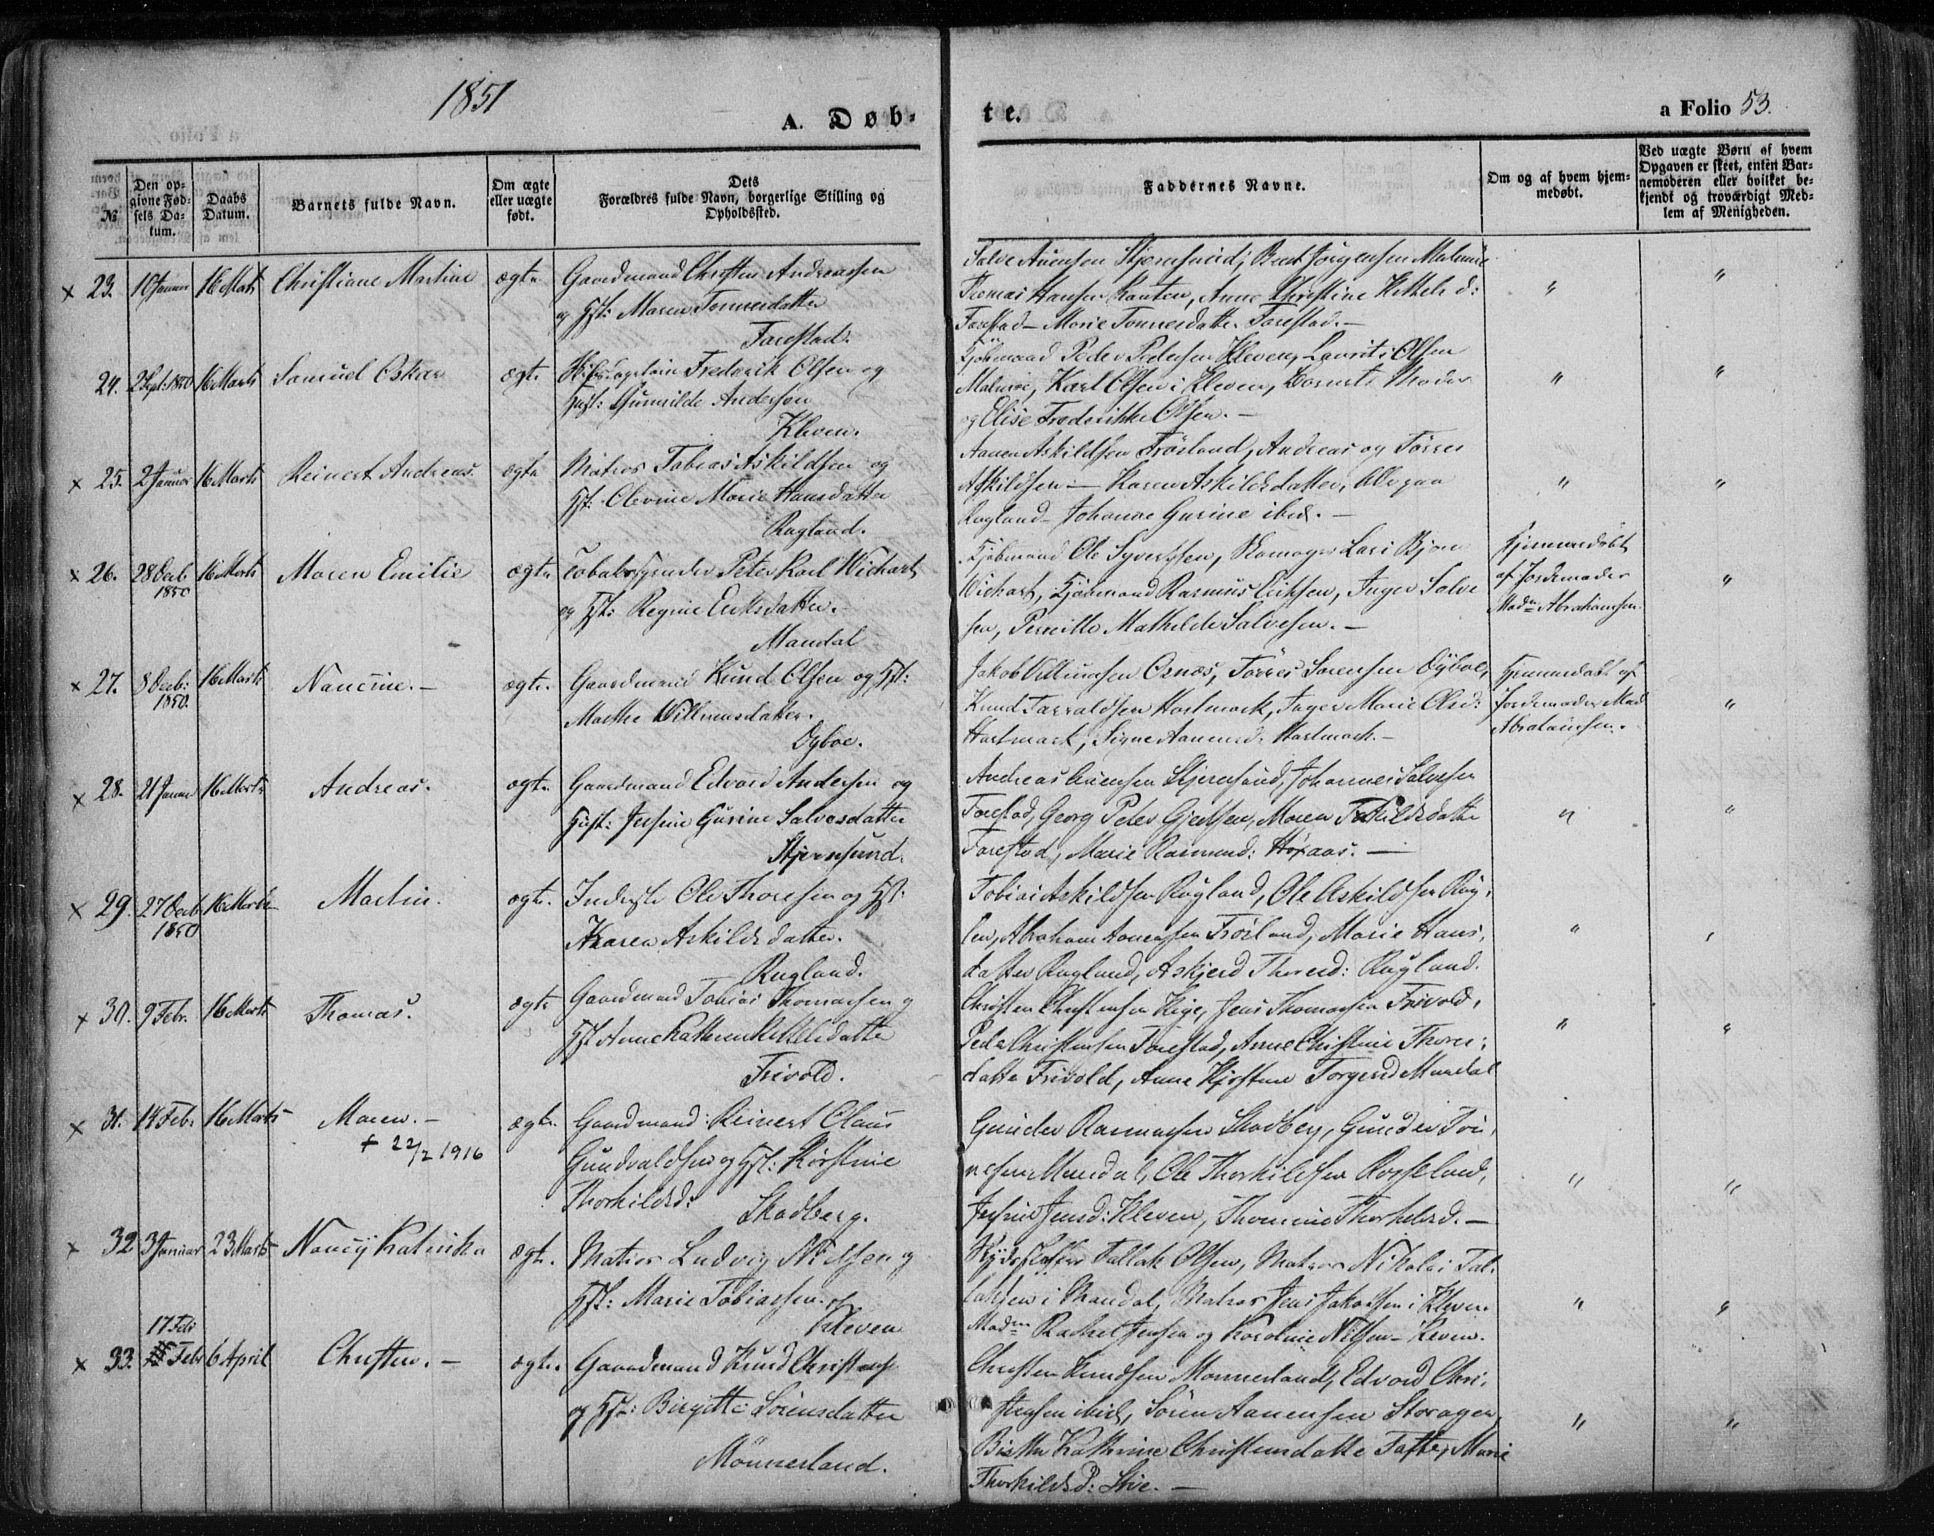 1851
A. Døb-
te.
a Folio 53.
№
Den op-
givne Fød-
sels Da-
tum.
Daabs
Datum.
Barnets fulde Navn.
Om ægte
eller uægte
født.
Dets
Forældres fulde Navn, borgerlige Stilling og
Opholdssted.
Faddernes Navne.
Om og af hvem hjem-
medøbt.
Ved uægte Børn af hvem
Opgaven er skeet, enten Bar-
nemoderen eller hvilket be-
kjendt og troværdigt Med-
lem af Menigheden.
x 23. 10 Januar 16 Marts Christiane Martine ægte Gaardmand Christen Andreassen
og Hst: Maren Tønnesdatter
Farestad.
Salve Stjernsund, Bent Jørgensen Malmøe
Thomas Hansen Ranten, Anne Christine Kittels d:
Farestad - Marie Tønnesdatter Farestad. -
24. 2 Sept: 1850 16 Marts Samuel Oskar ægte Skibscaptain Frederik Olsen og
Hust: Gunnilde Andersen
Kleven.
Peder Pedersen Kleven, Laurits Olsen
Malmøe, Karl Olsen i Kleven, Barnets Moder
og Elise Frederikke Olsen. -
x 25. 2 Januar 16 Marts Reinert Andreas. ægte Matros Tobias Askildsen og
Hst: Olevine Marie Hansdatter
Rugland.
Aanen Askildsen Frøsland, Andreas og Tørres
Askildsen - Karen Askildsdatter, Alle paa
Rugland - Johanne Gurine ibid. -
x 26. 28 Decb 1850 16 Marts Maren Emilie ægte Peter Karl Wichart
og Hst: Regine Eriksdatter.
Mandal
Kjøbmand Ole Syvertsen, Lars Bjørn
Wichart, Kjøbmand Rasmus Eriksen, Inger Salve
sen, Pernille Mathilde Salvesen. -
Hjemmedøbt
af Jordemoder
Madm Abrahamsen.
x 27. 8 Decb: 1850. 16 Marts Nancine. - ægte. Gaardmand Knud Olsen og Hst:
Marthe Willumsdatter.
Oybøe.
Jakob Villumsen Ornæs, Tørres Sørensen Oybøe,
Knud Tarraldsen Hartmark, Inger Marie Olsd:
Hartmark, Signe Aanensd: Hartmark. -
Hjemmedøbt af
Jordemoder Mad
Abrahamsen. -
x 28. 21 Januar 16 Marts Andreas. ægte. Gaardmand Edvard Andersen og
Hust: Jesine Gurine Salvesdatter
Stjernsund.
Andreas Stjernsund, Johannes Salvesen
Farestad, Georg Peter Gjertsen, Maren
Farestad, Marie Rasmusd: Høxaas. -
x 29. 27 Decb 1850 16 Marts Martin. ægte. Inderste Ole Thoresen og Hst:
Karen Askildsdatter.
Rugland.
Tobias Askildsen Rugland, Ole Askildsen Røy-
len, Abraham Aanensen Frøisland, Marie Hans-
datter Rugland, Askjerd Thoresd: Rugland.
x 30. 9 Febr. 16 Marts Thomas. ægte Gaardmand Tobias Thomassen og
Hst Anne Kathrine Kittelsdatter
Frivold.
Christen Christensen Kige, Jens Thomassen Frivold,
Peder Christensen Farestad, Anne Christine Thores-
datter Frivold, Anne Kjirstine Torgersd Mandal
x 31. 14 Febr 16 Marts Maren. - ægte. Gaardmand Reinert Claus
+ 22/2 1916
Gundvaldsen og Hst: Kirstine
Thorkildsd:
Skadberg.
Gunder Rasmussen Skadberg, Gunder Tøn-
nesen Mandal, Ole Thorkildsen Rosseland,
Jesine Jensd: Kleven, Thomine Thorkelsd. -
x 32 3 Januar 23 Marts Nancy Katinka ægte. Matros Ludvig Nielsen og
Hst: Marie Tobiassen. af
Kleven
Skydsskaffer Tallak Olsen, Matros Nikolai Tal-
laksen i Mandal, Matros Jens Jakobsen i Kleven
Madm Rachel Jensen og Karoline Nilsen - Kleven.
x 33. 17 Feb Febr 6 April Christen. - ægte. Gaardmand Knud Christens
og Hst: Birgitte Sørensdatter
Mønnesland.
Christen Knudsen Mønnesland, Edvard Chri-
stensen ibid, Søren Aanensen Storagen,
Birthe Kathrine Christensdatter Tofte, Marie
Thorkildsd: -